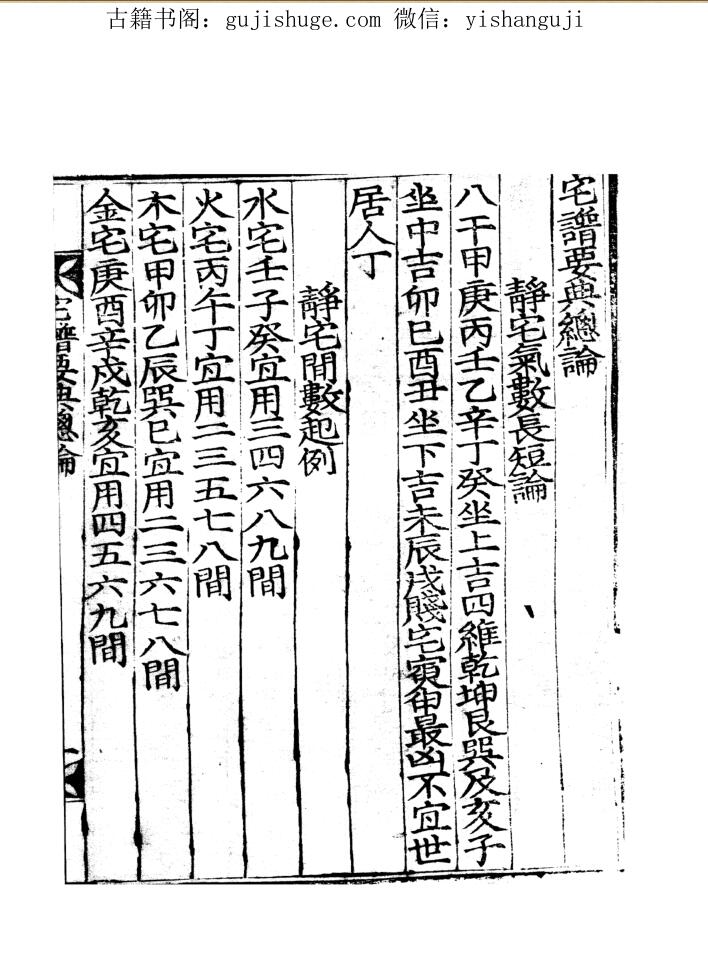 古籍书阁：gujishuge.com 微信：yishanguji
宅譜要典總論
靜宅氣數長短論
八干甲庚丙壬乙辛丁癸坐上吉四維乾坤艮巽及亥子
坐中吉卯巳酉丑坐下吉未辰戌賤宅寅申最凶不宜世
居人丁
靜宅間數起例
水宅壬子癸宜用三四六八九間
火宅丙午丁宜用二三五七八間
木宅甲卯乙辰巽巳宜用二三六七八間
金宅庚酉辛戌乾亥宜用四五六九間
宅譜要典總論